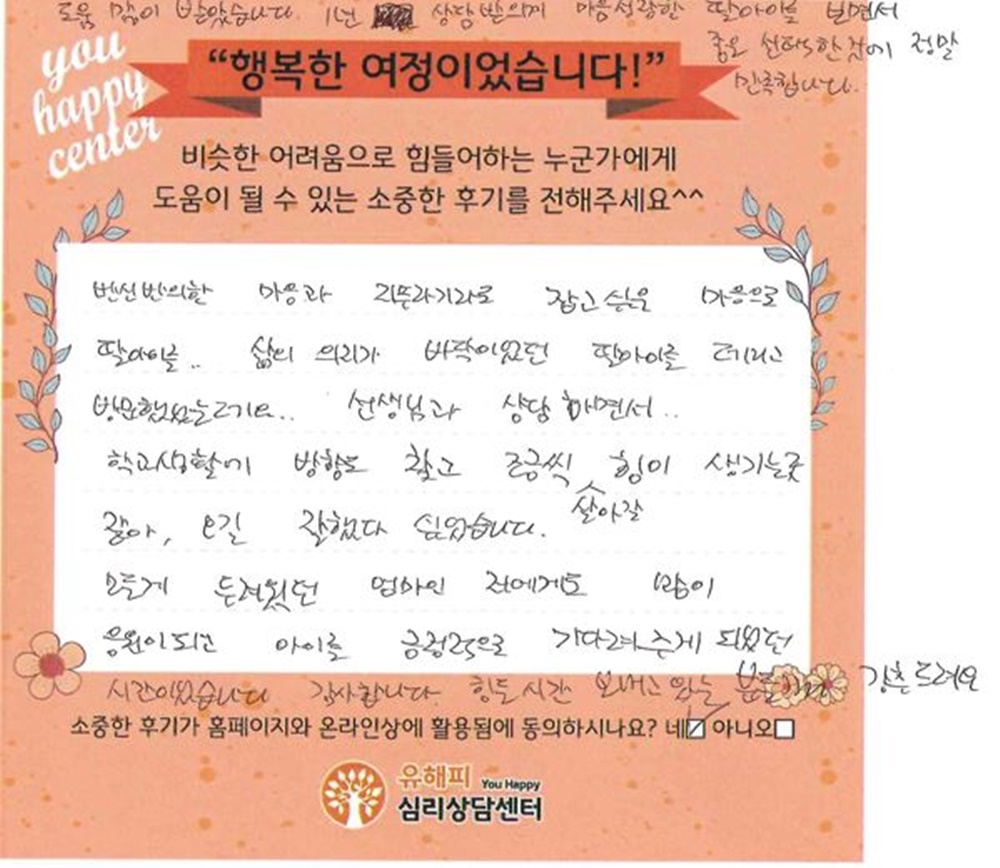 도움 많이 받았습니다. 1년 상담받으며 마음성장한 딸아이를 보면서
좋은 선택한것에 정말
만족합니다.
you
happy
center
“행복한 여정이었습니다!”
비슷한 어려움으로 힘들어하는 누군가에게
도움이 될 수 있는 소중한 후기를 전해주세요^^
반신반의한 마음과 지푸라기라도 잡고 싶은 마음으로
딸아이를.. 삶의 의지가 바닥이었던 딸아이를 데리고
방문했었는데요.. 선생님과 상담하면서..
학교생활에 방향도 찾고 조금씩 살아갈 힘이 생기는것
같아, 오길 잘했다 싶었습니다.
모든게 두려웠던 엄마인 저에게도 많이
응원이되고 아이를 긍정적으로 기다려주게 되었던
시간이었습니다 감사합니다. 힘든시간 보내고 있는 강추드려요
소중한 후기가 홈페이지와 온라인상에 활용됨에 동의하시나요? 네☑ 아니오☐
유해피 You Happy
심리상담센터